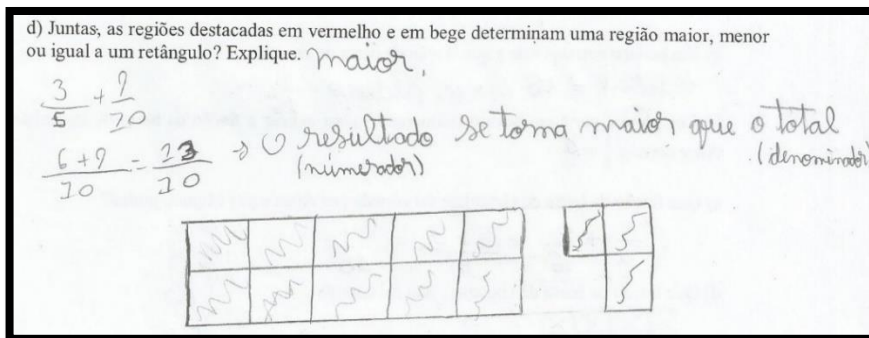 d) Juntas, as regiões destacadas em vermelho e em bege determinam uma região maior, menor
ou igual a um retângulo? Explique. maior.
3/5 + 7/10
6+7/10 = 13/10 → O resultado se torna maior que o total
(numerador) (denominador)